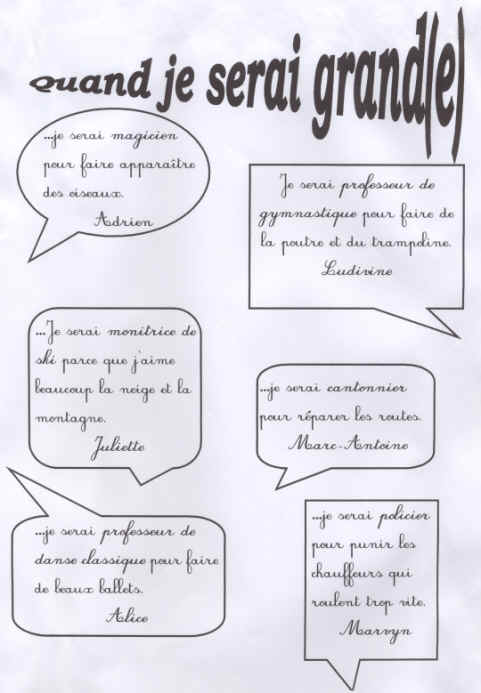 Quand je serai grand(e)
...je serai magicien
pour faire apparaître
des oiseaux.
Adrien
Je serai professeur de
gymnastique pour faire de
la poutre et du trampoline.
Ludivine
...Je serai monitrice de
ski parce que j'aime
beaucoup la neige et la
montagne.
Juliette
...je serai cantonnier
pour réparer les routes.
Marc-Antoine
...je serai professeur de
danse classique pour faire
de beaux ballets.
Alice
...je serai policier
pour punir les
chauffeurs qui
roulent trop vite.
Marvyn